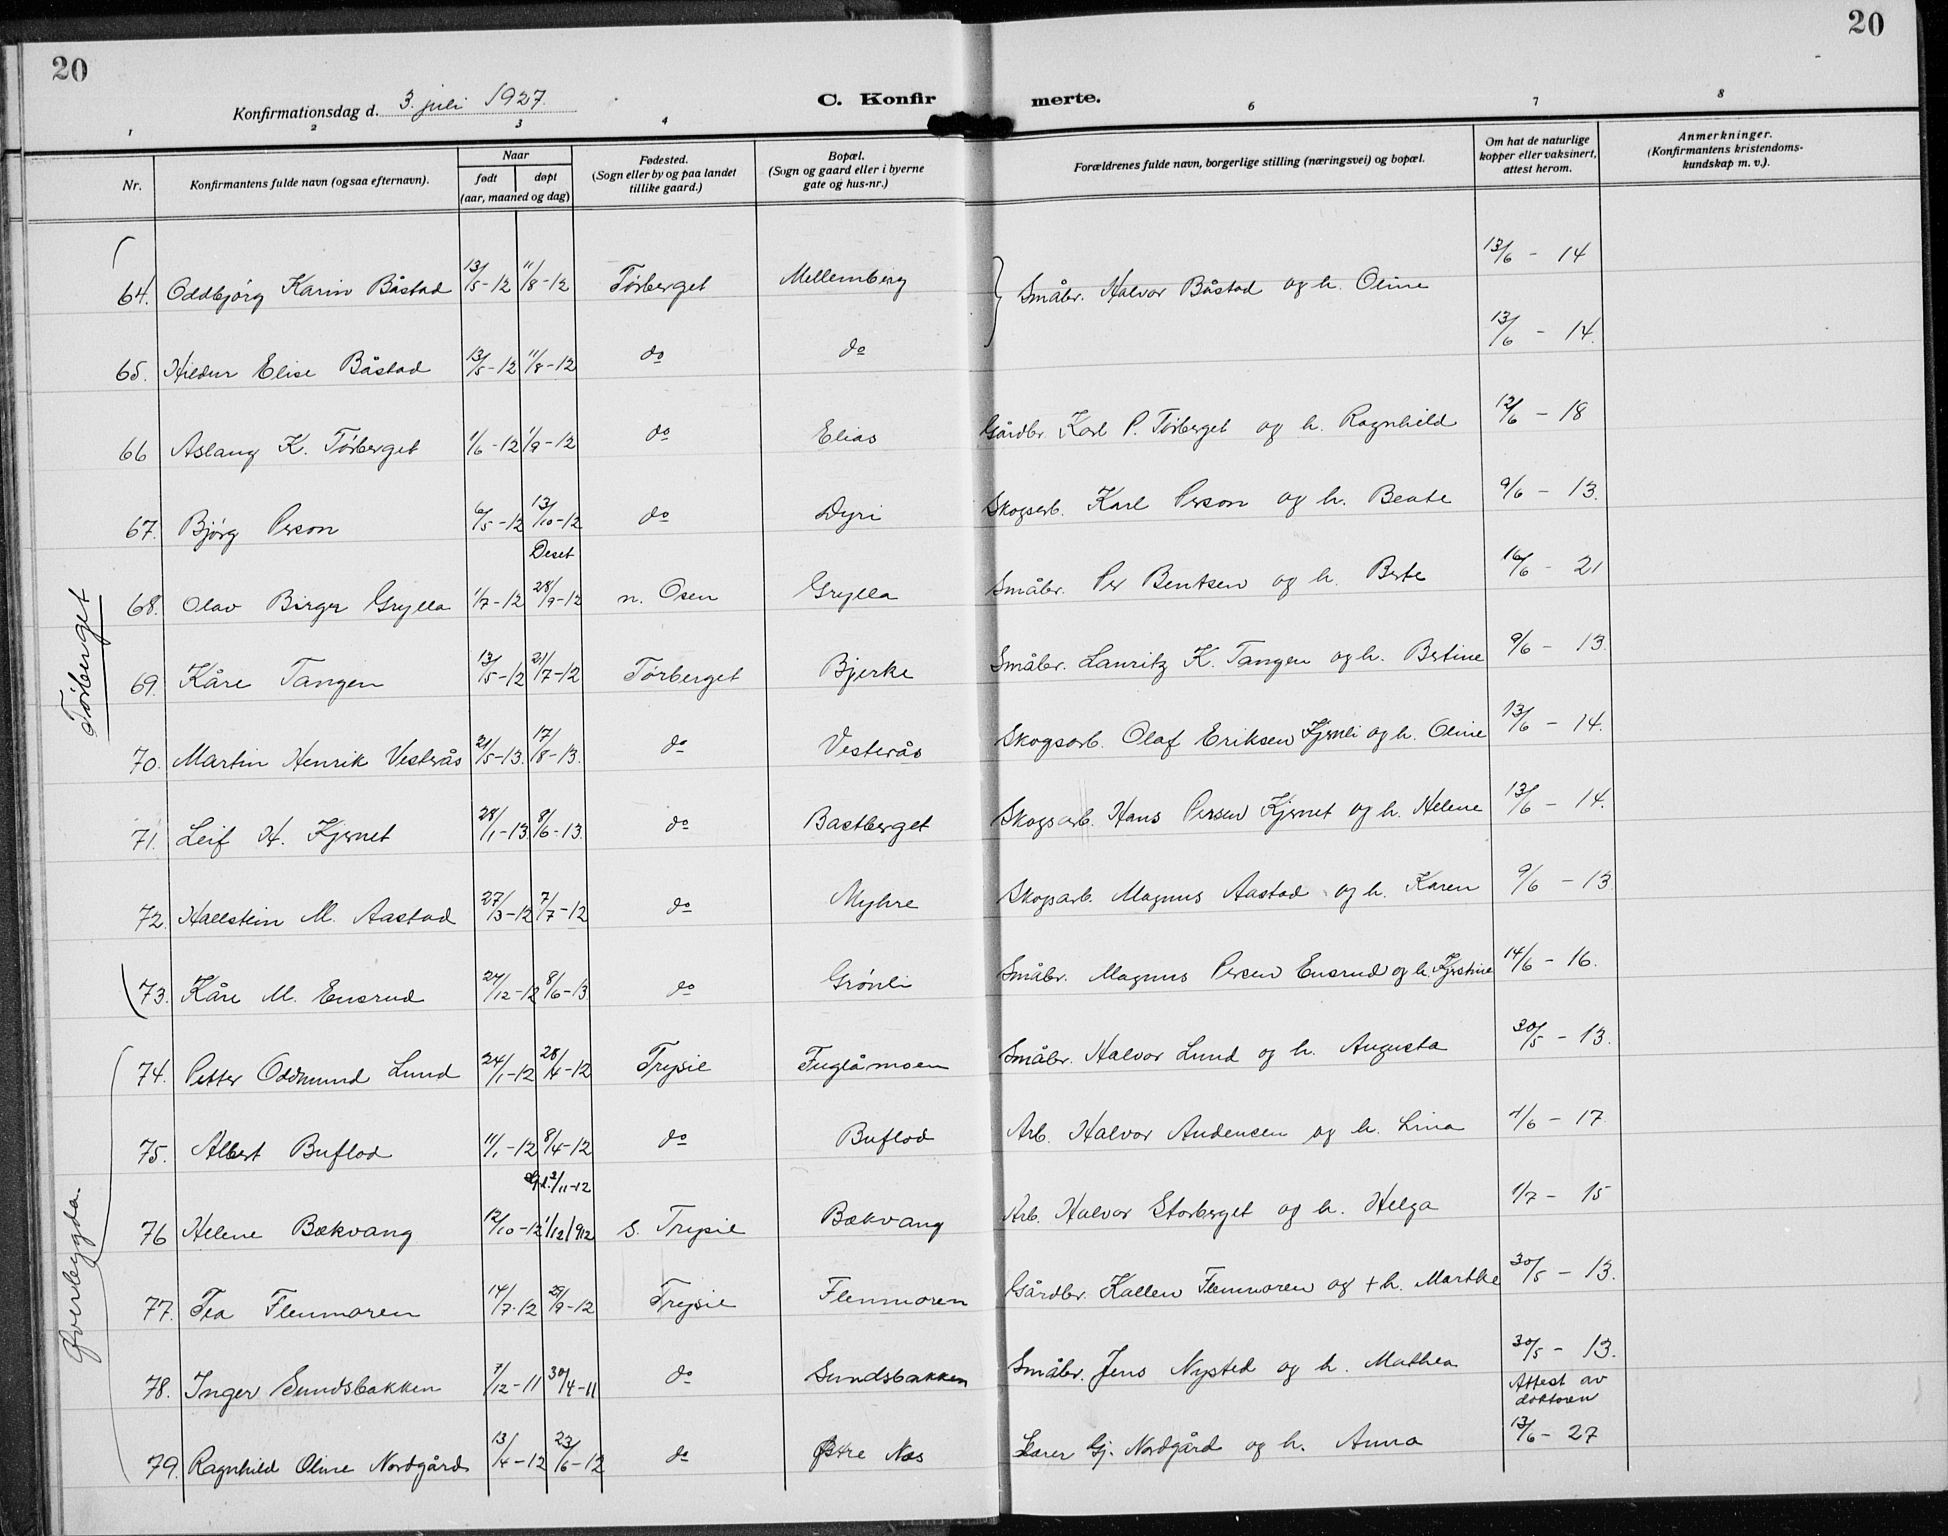 20
20
Konfirmationsdag d. 3. juli 1927.
C. Konfirmerte.
1 2 3 4 6 7 8
Nr.
Konfirmantens fulde navn (ogsaa efternavn).
Naar
født
døpt
(aar, maaned og dag)
Fødested.
(Sogn eller by og paa landet
tillike gaard.)
Bopæl.
(Sogn og gaard eller i byerne
gate og hus-nr.)
Forældrenes fulde navn, borgerlige stilling (næringsvei) og bopæl.
Om hat de naturlige
kopper eller vaksinert,
attest herom.
Anmerkninger.
(Konfirmantens kristendoms-
kundskap m. v.).
Tørberget
64. Oddbjörg Karin Båstad 13/5-12 11/8-12 Tørberget Mellemberg Småbr. Halvor Båstad og h. Oline 13/6 - 14
65. Hildur Elise Båstad 13/5-12 11/8-12 do do 13/6 - 14.
66 Aslaug K. Tørberget 1/6-12 1/9-12 do Elias Gårdbr. Karl P. Tørberget og h. Ragnhild 12/6 - 18
67. Bjørg Person 6/5-12 13/10-12 do Dyri Skogsarb. Karl Person og h. Beate 9/6 - 13.
68. Olav Birger Grylla 1/7-12 Deset 28/9-12 n. Osen Grylla Småbr. Per Bentsen og h. Berte 16/6 - 21
69. Kåre Tangen 13/5-12 21/7-12 Tørberget Bjerke Småbr. Lauritz K. Tangen og h. Bertine 9/6 - 13.
70. Martin Henrik Vesterås 21/5-13. 17/8-13. do Vesterås Skogsarb. Olaf Eriksen Kjernli og h. Oline 13/6 - 14.
71. Leif H. Kjernet 28/1-13. 8/6-13. do Bastberget Skogsarb. Hans Persen Kjernet og h. Helene 13/6 - 14.
72. Hallstein M. Aastad 27/3-12 7/7-12 do Myhre Skogsarb. Magnus Aastad og h. Karen 9/6 - 13
73. Kåre M. Ensrud 27/12-12 8/6-13 do Grönli Småbr. Magnus Persen Ensrud og h. Kjerstine 14/6 - 16.
Øverbygda.
74. Petter Oddmund Lund 24/1-12 28/4-12 Trysil Fuglåmoen Småbr. Halvor Lund og h. Augusta 30/5 - 13.
75. Albert Buflod 11/1-12 8/4-12 do Buflod Arb. Halvor Andensen og h. Lina 1/6 - 17
76 Helene Bækvang 12/10-12 2/11-12 1/12 1912 s. Trysil Bækvang Arb. Halvor Storberget og h. Helga 1/7 - 15
77. Tea Flenmoren 14/7-12 29/9-12 Trysil Flenmoren Gårdbr. Hallen Flenmoren og + h. Marthe 30/5 - 13.
78. Inger Sundsbakken 7/12-11 30/4-11 do Sundsbakken Småbr. Jens Nysted og h. Mathea 30/5 - 13.
79. Ragnhild Oline Nordgård 13/4-12 23/6-12 do Østre Nes Lærer Gj. Nordgård og h. Anna Attest av doktoren 13/6 - 27